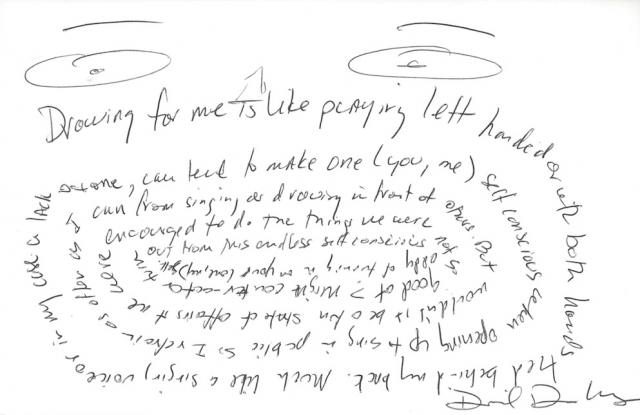 Drawing for me is like playing left handed or with both hands
tied behind my back. Much like a singing voice or in my case a lack
of one, can tend to make one (you, me) self conscious when
opening up to sing in public so I refrain as often as I
can from singing or drawing in front of others. But
wouldn't it be a fun state of affairs if we were
encouraged to do the things we were not so
good at > might counter-act
out from this endless self conscious
of turning in on your (our, my) self